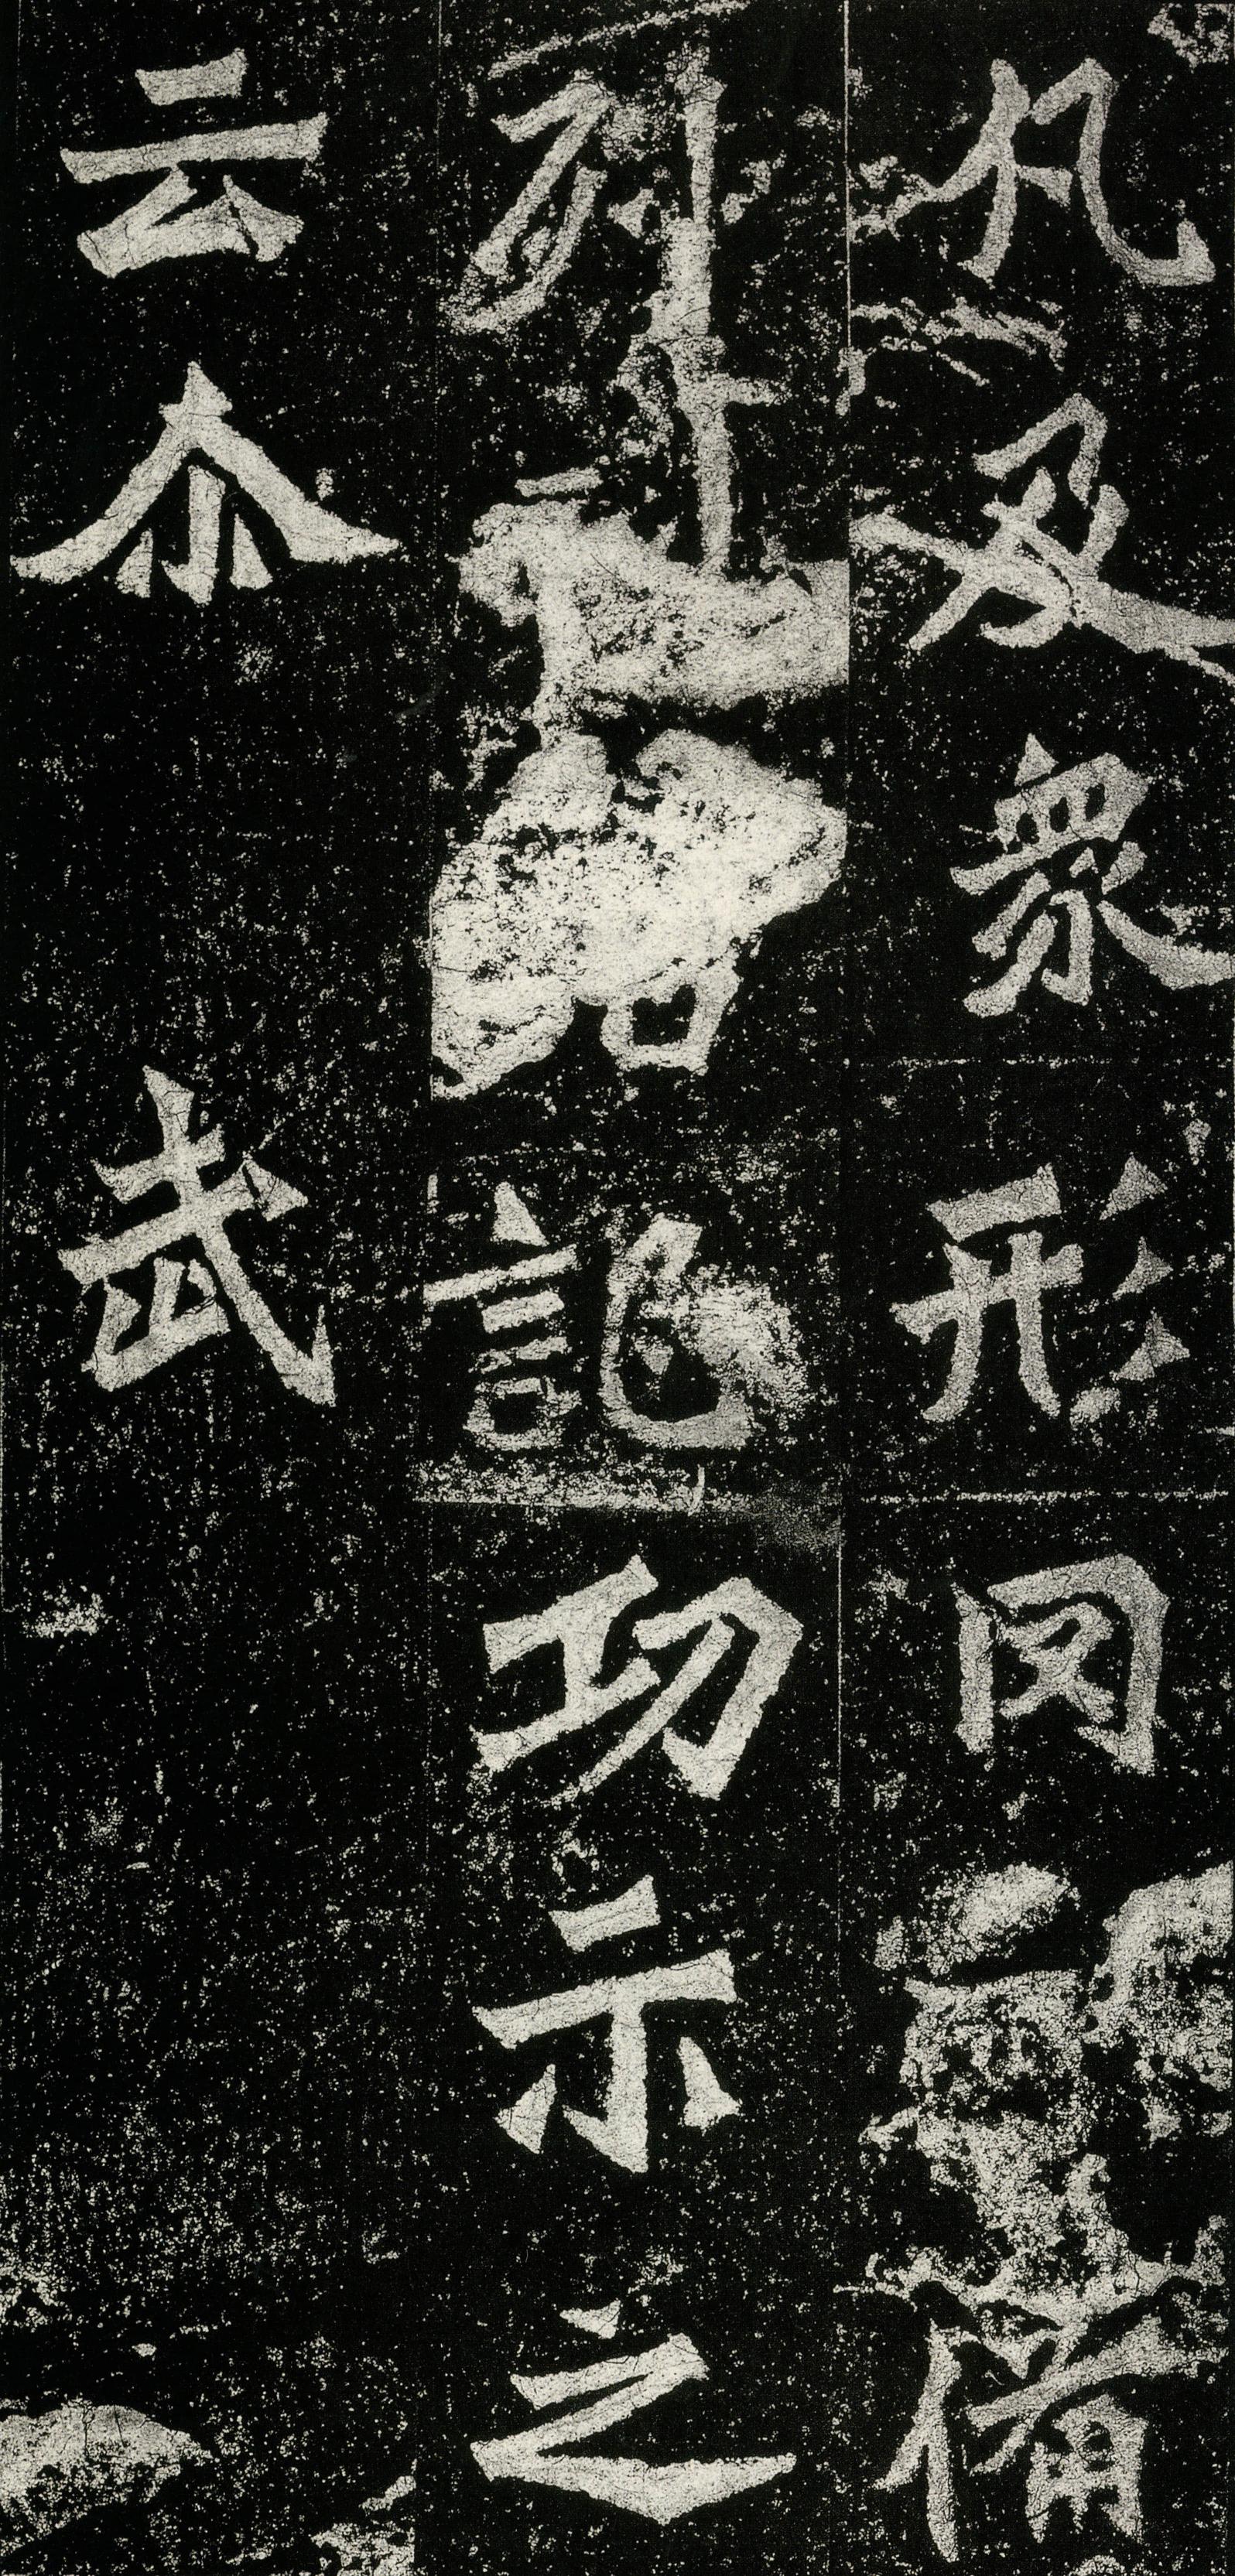 凡及衆形罔備
列刊石記功示之
云尒 武